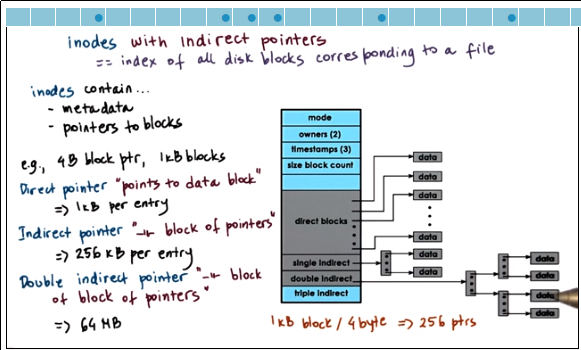 inodes with Indirect pointers
== index of all disk blocks corresponding to a file
inodes contain...
- metadata
- pointers to blocks
e.g., 4B block ptr, 1kB blocks
Direct pointer "points to data block"
=> 1kB per entry
Indirect pointer "-"- block of pointers"
=> 256 kB per entry
Double indirect pointer "-"- block
of block of pointers"
=> 64 MB
mode
owners (2)
timestamps (3)
size block count
direct blocks
single indirect
double indirect
triple indirect
data
data
data
data
data
data
data
data
data
data
1kB block / 4 byte => 256 ptrs